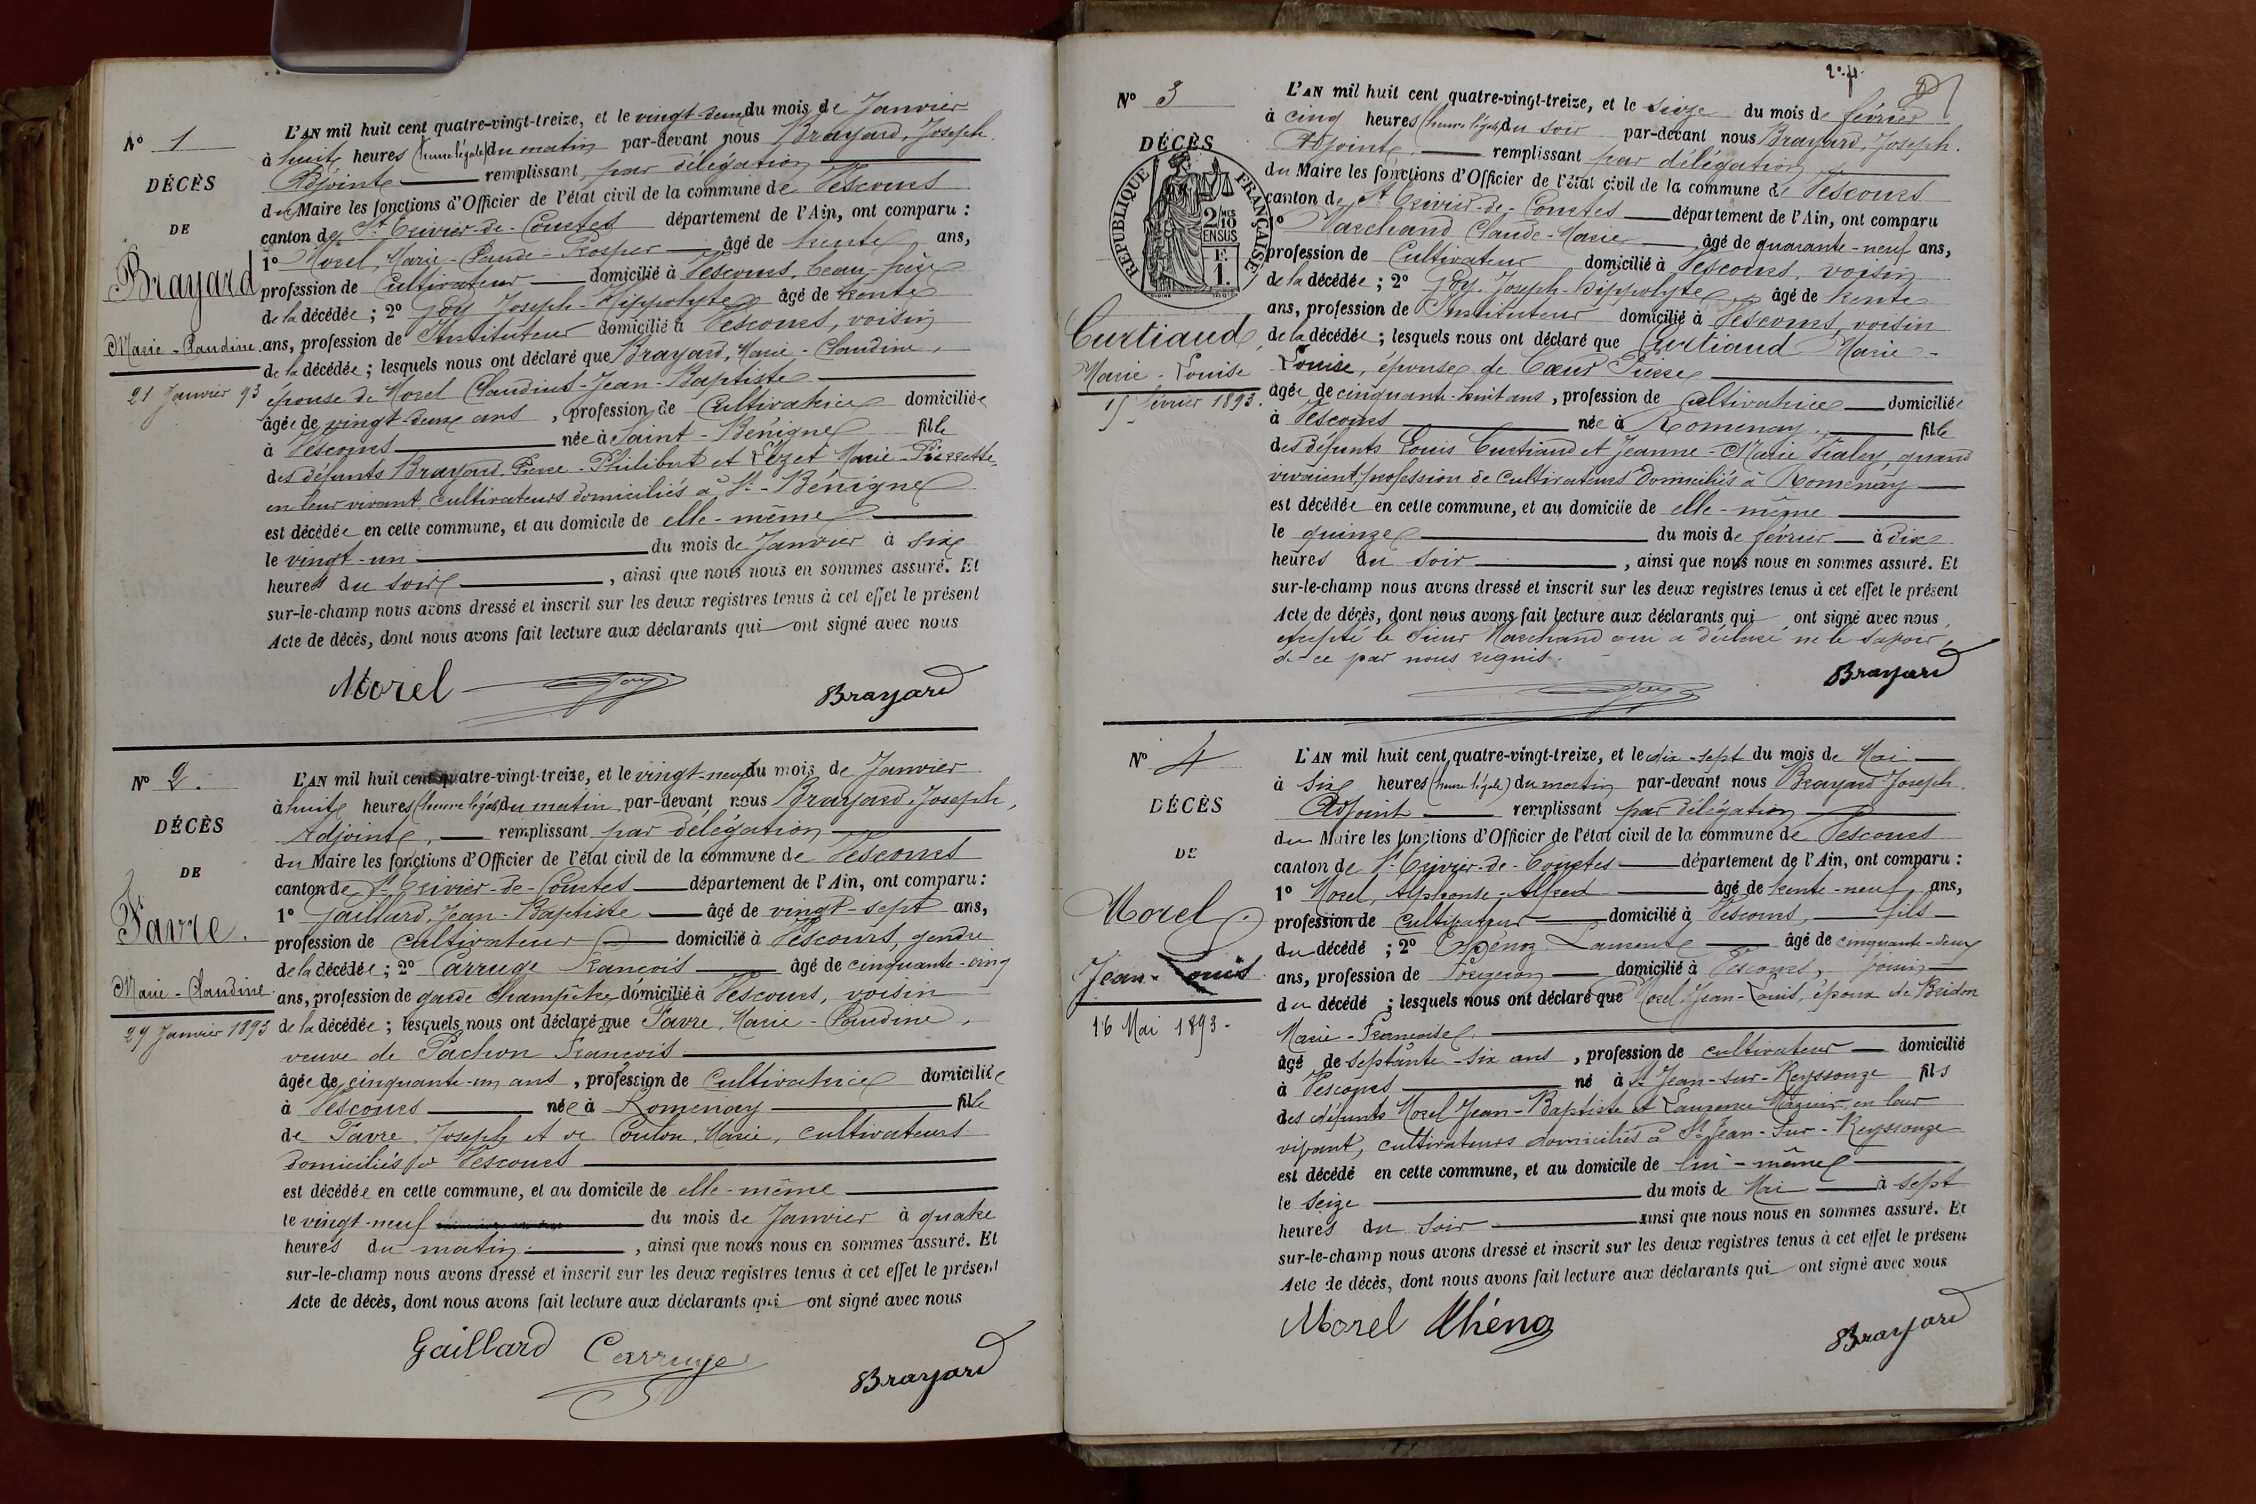 N° 1
DÉCÈS
DE
Brayard
Marie-Claudine
21 Janvier 93
L'AN mil huit cent quatre-vingt-treize, et le vingt-deux du mois de Janvier
à huit heures (heure légale) du matin par-devant nous Brayard, Joseph
Adjoint remplissant par délégation
du Maire les fonctions d'Officier de l'état civil de la commune de Vescours
canton de St Trivier-de-Courtes département de l'Ain, ont comparu :
1° Morel, Marie-Claude-Prosper âgé de trente ans,
profession de Cultivateur domicilié à Vescours, beau-frère
de la décédée ; 2° Goy Joseph-Hippolyte âgé de trente
ans, profession de Instituteur domicilié à Vescours, voisin
de la décédée ; lesquels nous ont déclaré que Brayard, Marie-Claudine,
épouse de Morel Claudius-Jean-Baptiste
âgée de vingt-deux ans, profession de Cultivatrice domiciliée
à Vescours née à Saint-Bénigne fille
des défunts Brayard Pierre-Philibert et Marie-Pierrette
en leur vivant cultivateurs domiciliés à St-Bénigne
est décédée en cette commune, et au domicile de elle-même
le vingt-un du mois de Janvier à six
heures du soir, ainsi que nous nous en sommes assuré. Et
sur-le-champ nous avons dressé et inscrit sur les deux registres tenus à cet effet le présent
Acte de décès, dont nous avons fait lecture aux déclarants qui ont signé avec nous
Morel Goy Brayard
N° 2.
DÉCÈS
DE
Favre.
Marie-Claudine
29 Janvier 1893
L'AN mil huit cent quatre-vingt-treize, et le vingt-neuf du mois de Janvier
à huit heures (heure légale) du matin par-devant nous Brayard, Joseph,
Adjoint, remplissant par délégation
du Maire les fonctions d'Officier de l'état civil de la commune de Vescours
canton de St Trivier-de-Courtes département de l'Ain, ont comparu :
1° Gaillard, Jean-Baptiste âgé de vingt-sept ans,
profession de cultivateur domicilié à Vescours, gendre
de la décédée ; 2° Carruge François âgé de cinquante-cinq
ans, profession de garde champêtre domicilié à Vescours, voisin
de la décédée ; lesquels nous ont déclaré que Favre, Marie-Claudine,
veuve de Pachon François
âgée de cinquante-un ans, profession de Cultivatrice domiciliée
à Vescours née à Romenay fille
de Favre Joseph et de Coulon Marie, cultivateurs
domiciliés à Vescours
est décédée en cette commune, et au domicile de elle-même
le vingt-neuf du mois de Janvier à quatre
heures du matin, ainsi que nous nous en sommes assuré. Et
sur-le-champ nous avons dressé et inscrit sur les deux registres tenus à cet effet le présent
Acte de décès, dont nous avons fait lecture aux déclarants qui ont signé avec nous
Gaillard Carruge Brayard
N° 3
DÉCÈS
RÉPUBLIQUE FRANÇAISE
2/10 EN SUS
F. 1.
Curtiaud
Marie-Louise
15 février 1893.
L'AN mil huit cent quatre-vingt-treize, et le seize du mois de février
à cinq heures (heure légale) du soir par-devant nous Brayard, Joseph.
Adjoint remplissant par délégation
du Maire les fonctions d'Officier de l'état civil de la commune de Vescours
canton de St Trivier-de-Courtes département de l'Ain, ont comparu
1° Marchand Claude-Marie âgé de quarante-neuf ans,
profession de Cultivateur domicilié à Vescours, voisin
de la décédée ; 2° Goy Joseph-Hippolyte, âgé de trente
ans, profession de Instituteur domicilié à Vescours, voisin
de la décédée ; lesquels nous ont déclaré que Curtiaud Marie-
Louise, épouse de Cœur Pierre
âgée de cinquante-huit ans, profession de cultivatrice domiciliée
à Vescours née à Romenay fille
des défunts Louis Curtiaud et Jeanne-Marie quand
vivaient profession de cultivateurs domiciliés à Romenay
est décédée en cette commune, et au domicile de elle-même
le quinze du mois de février à dix
heures du soir, ainsi que nous nous en sommes assuré. Et
sur-le-champ nous avons dressé et inscrit sur les deux registres tenus à cet effet le présent
Acte de décès, dont nous avons fait lecture aux déclarants qui ont signé avec nous,
excepté le sieur Marchand qui a déclaré ne le savoir,
de ce par nous requis.
Goy Brayard
N° 4
DÉCÈS
DE
Morel
Jean-Louis
16 Mai 1893.
L'AN mil huit cent quatre-vingt-treize, et le dix-sept du mois de Mai
à six heures (heure légale) du matin par-devant nous Brayard Joseph.
Adjoint remplissant par délégation
du Maire les fonctions d'Officier de l'état civil de la commune de Vescours
canton de St Trivier-de-Courtes département de l'Ain, ont comparu :
1° Morel, Alphonse-Alfred âgé de trente-neuf ans,
profession de cultivateur domicilié à Vescours, fils
du décédé ; 2° Laurent âgé de cinquante-deux
ans, profession de Forgeron domicilié à Vescours, voisin
du décédé ; lesquels nous ont déclaré que Morel Jean-Louis, époux de Bridon
Marie-Françoise
âgé de septante-six ans, profession de cultivateur domicilié
à Vescours né à St Jean-sur-Reyssouze fils
des défunts Morel Jean-Baptiste et Laurence en leur
vivant, cultivateurs domiciliés à St Jean-sur-Reyssouze
est décédé en cette commune, et au domicile de lui-même
le seize du mois de Mai à sept
heures du soir ainsi que nous nous en sommes assuré. Et
sur-le-champ nous avons dressé et inscrit sur les deux registres tenus à cet effet le présent
Acte de décès, dont nous avons fait lecture aux déclarants qui ont signé avec nous
Morel Brayard